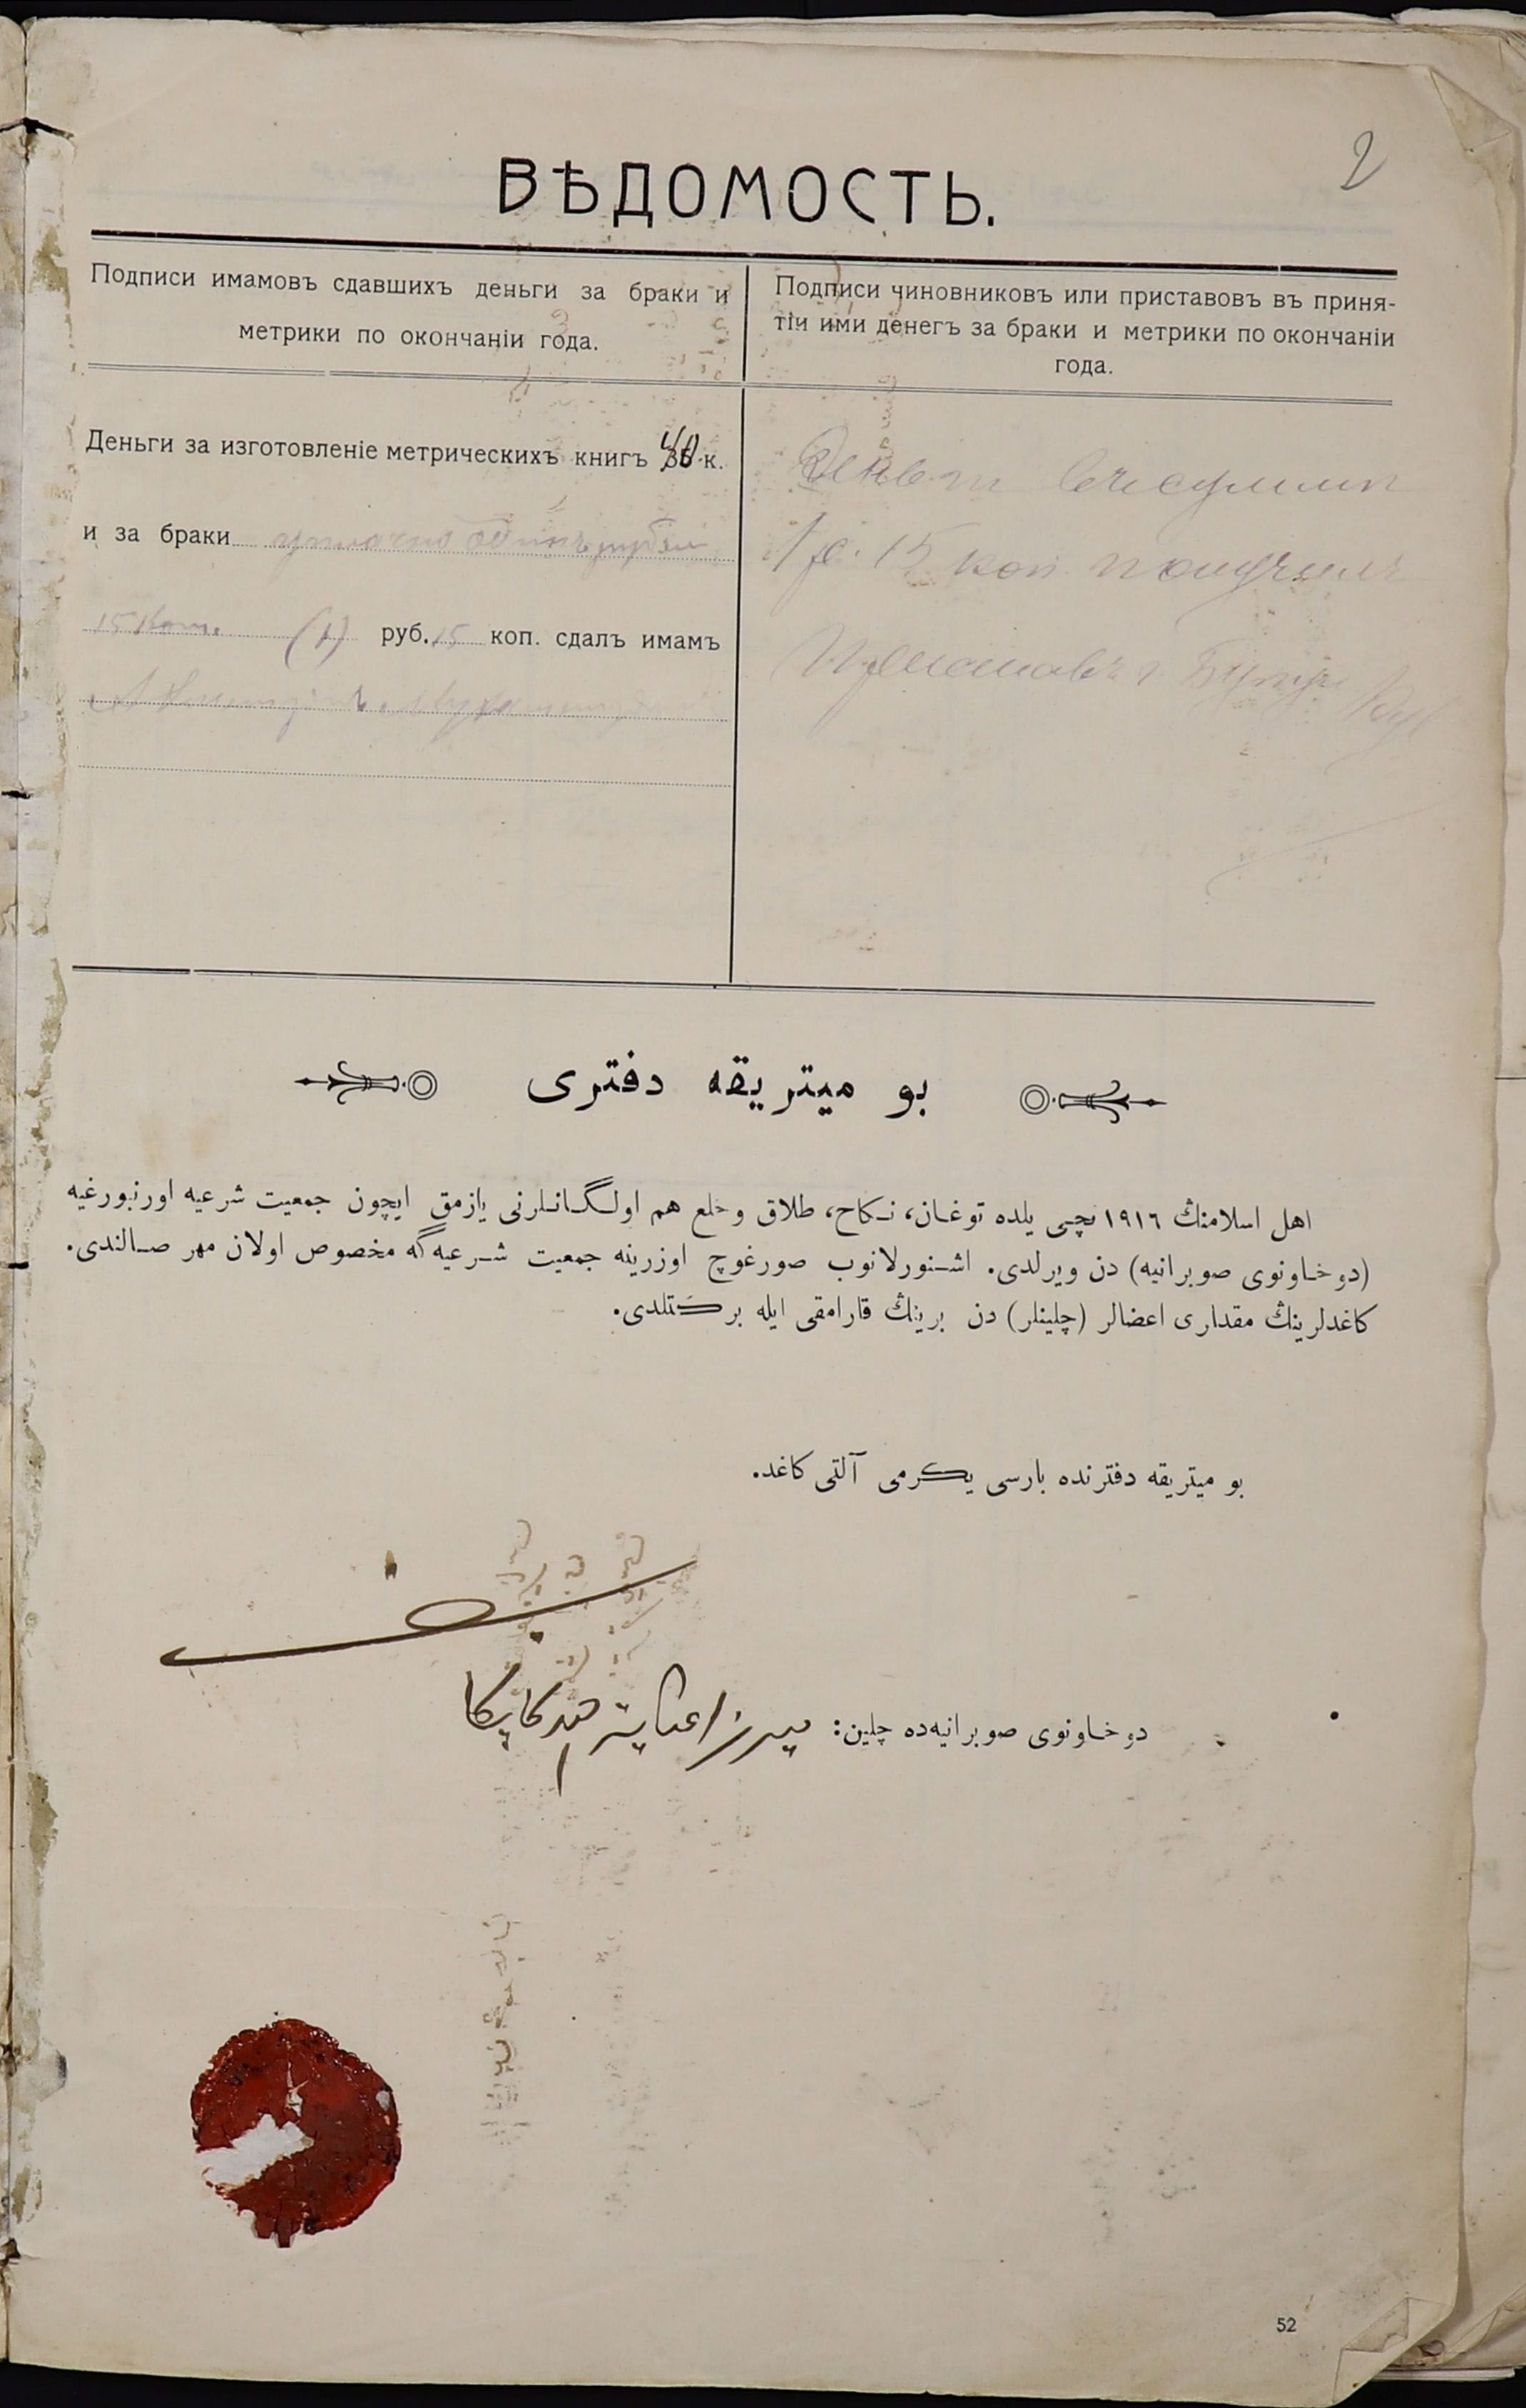 2
ВѢДОМОСТЬ.
Подписи имамовъ сдавшихъ деньги за браки и
метрики по окончаніи года.
Подписи чиновниковъ или приставовъ въ приня-
тіи ими денегъ за браки и метрики по окончаніи
года.
Деньги за изготовленіе метрическихъ книгъ 40 к.
и за браки один рубль
15 коп. (1) руб. 15 коп. сдалъ имамъ
1 р. 15 коп. получилъ
بو ميتريقه دفترى
اهل اسلامنڭ ١٩١٦ نچى يلده توغان، نكاح، طلاق و خلع هم اولگانلرنى يازمق ايچون جمعيت شرعيه اورنبورغيه
(دوخاونوى صوبرانيه) دن ويرلدى. اشنورلانوب صورغوچ اوزرينه جمعيت شرعيه گه مخصوص اولان مهر صالندى.
كاغدلرينڭ مقدارى اعضالر (چلينلر) دن برينڭ قارامقى ايله بركتلدى.
بو ميتريقه دفترنده بارسى يكرمى آلتى كاغد.
دوخاونوى صوبرانيه‌ده چلين:
52